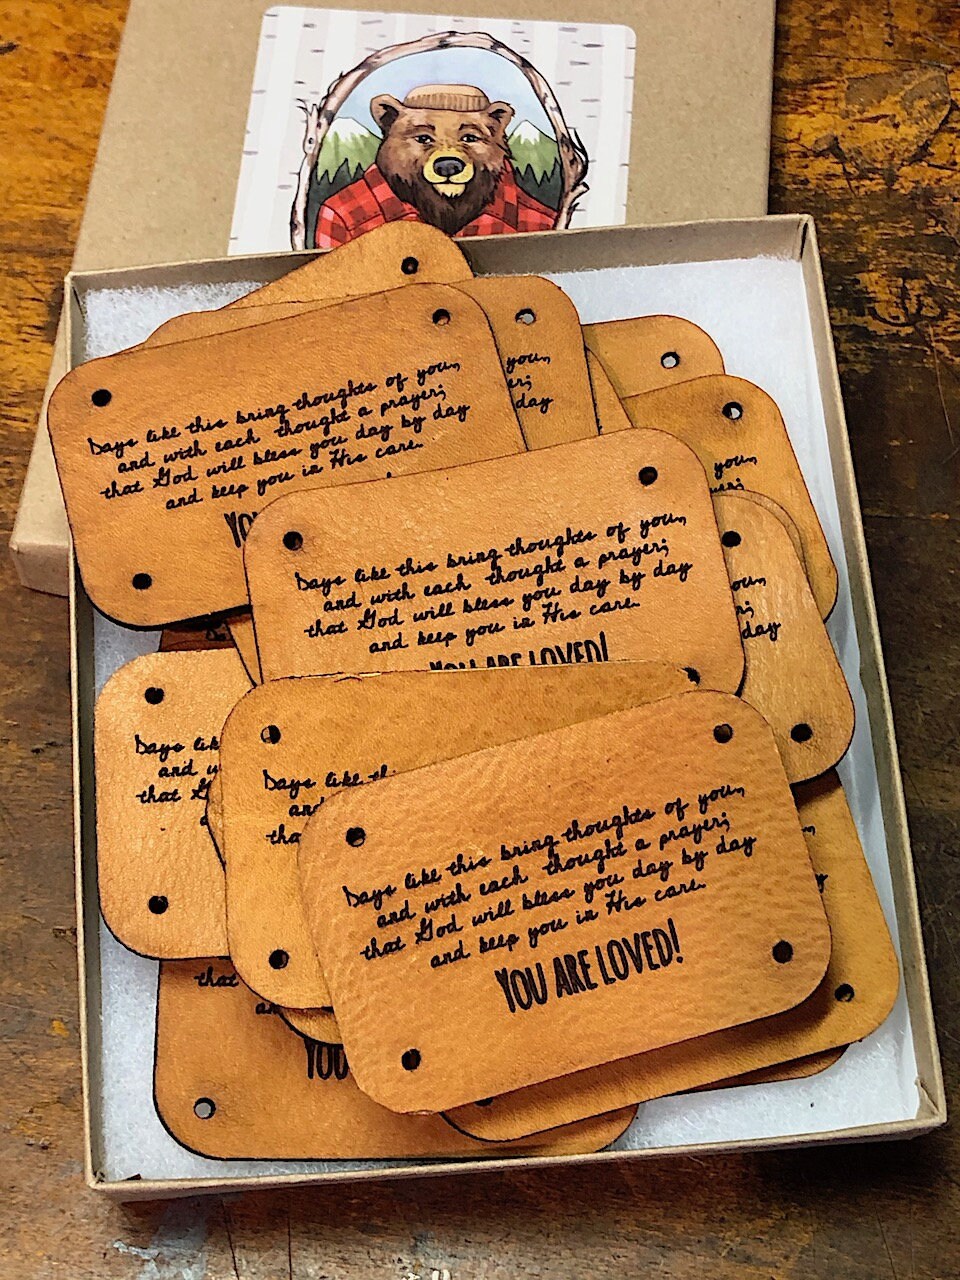 Days like this bring thoughts of you,
and with each thought a prayer;
that God will bless you day by day
and keep you in His care.
YO
you,
er;
day
you,
Days like this bring thoughts of you,
and with each thought a prayer;
that God will bless you day by day
and keep you in His care.
YOU ARE LOVED!
you,
day
Days lik
and w
that G
Days like th
and
tha
Days like this bring thoughts of you,
and with each thought a prayer;
that God will bless you day by day
and keep you in His care.
YOU ARE LOVED!
that
an
YOU